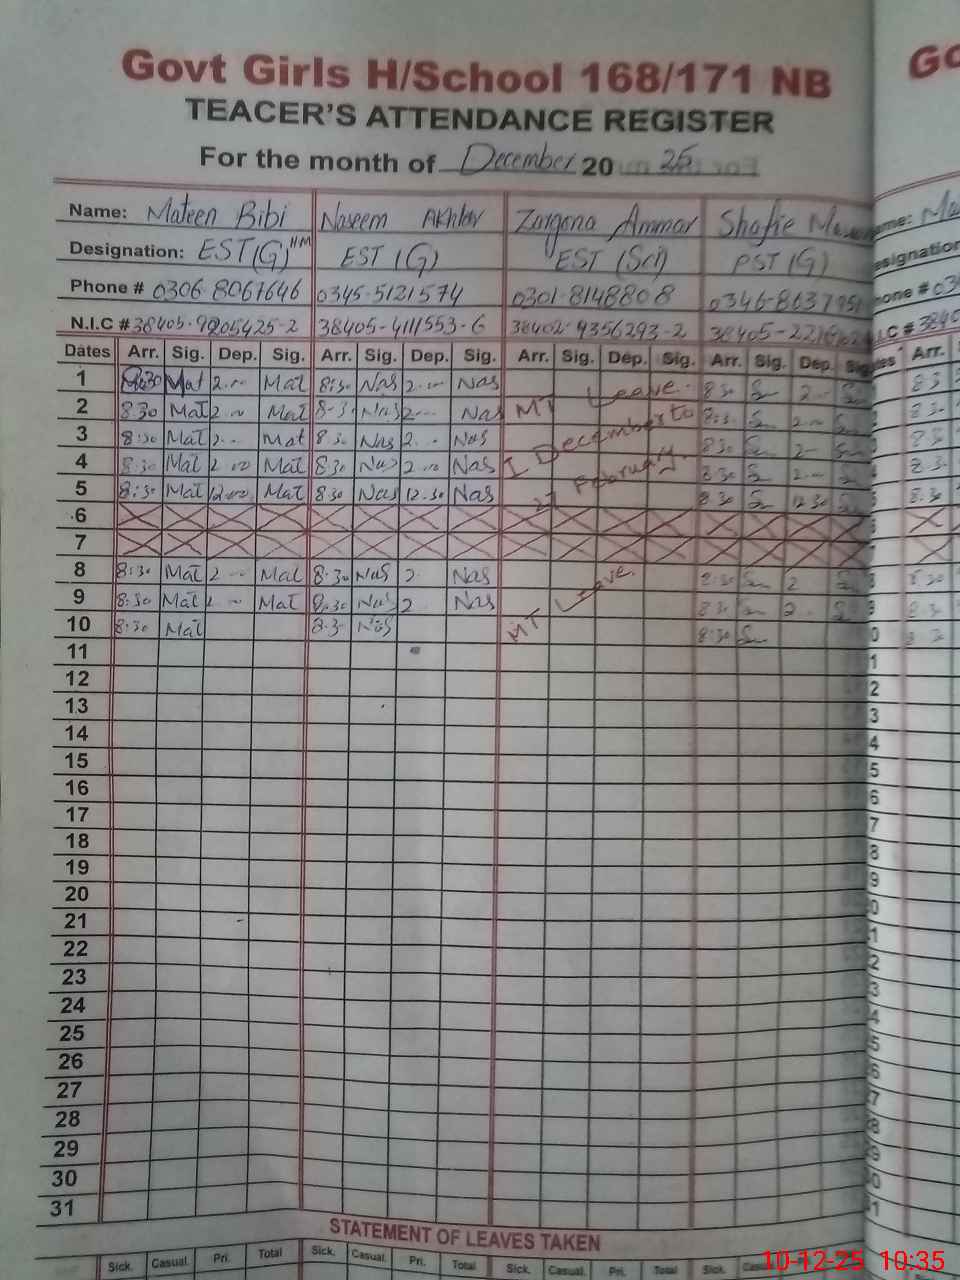 Govt Girls H/School 168/171 NB
TEACER'S ATTENDANCE REGISTER
For the month of December 20 25
Name: Mateen Bibi Naseem Akhtar Zargona Ammar Shafie
Designation: EST(G) HM EST (G) EST (Sci) PST (G)
Phone # 0306-8067646 0345-5121574 0301-8148808 0346-8637951
N.I.C # 38405-9905425-2 38405-4111553-6 38402-9356293-2 38405-
Dates Arr. Sig. Dep. Sig. Arr. Sig. Dep. Sig. Arr. Sig. Dep. Sig. Arr. Sig. Dep. Sig.
1 8:30 Mat 2-00 Mat 8:30 Nas 2-00 Nas MT Leave. 8:30 2-00
2 8:30 Mat 2-00 Mat 8-30 Nas 2-00 Nas 1 December to 8:30 2-00
3 8:30 Mat 2-00 Mat 8:30 Nas 2-00 Nas 27 February. 8:30 2-
4 8:30 Mat 2-00 Mat 8:30 Nas 2-00 Nas 8:30 2-00
5 8:30 Mat 12-00 Mat 8:30 Nas 12-30 Nas 8:30 12-30
6
7
8 8:30 Mat 2-00 Mat 8:30 Nas 2- Nas MT Leave. 8:30 2
9 8:30 Mat 2-00 Mat 8:30 Nas 2 Nas 8:30 2-
10 8:30 Mat 8:30 Nas 8:30
11
12
13
14
15
16
17
18
19
20
21
22
23
24
25
26
27
28
29
30
31
STATEMENT OF LEAVES TAKEN
Sick. Casual. Pri. Total Sick. Casual. Pri. Total Sick. Casual. Pri. Total Sick.
10-12-25 10:35